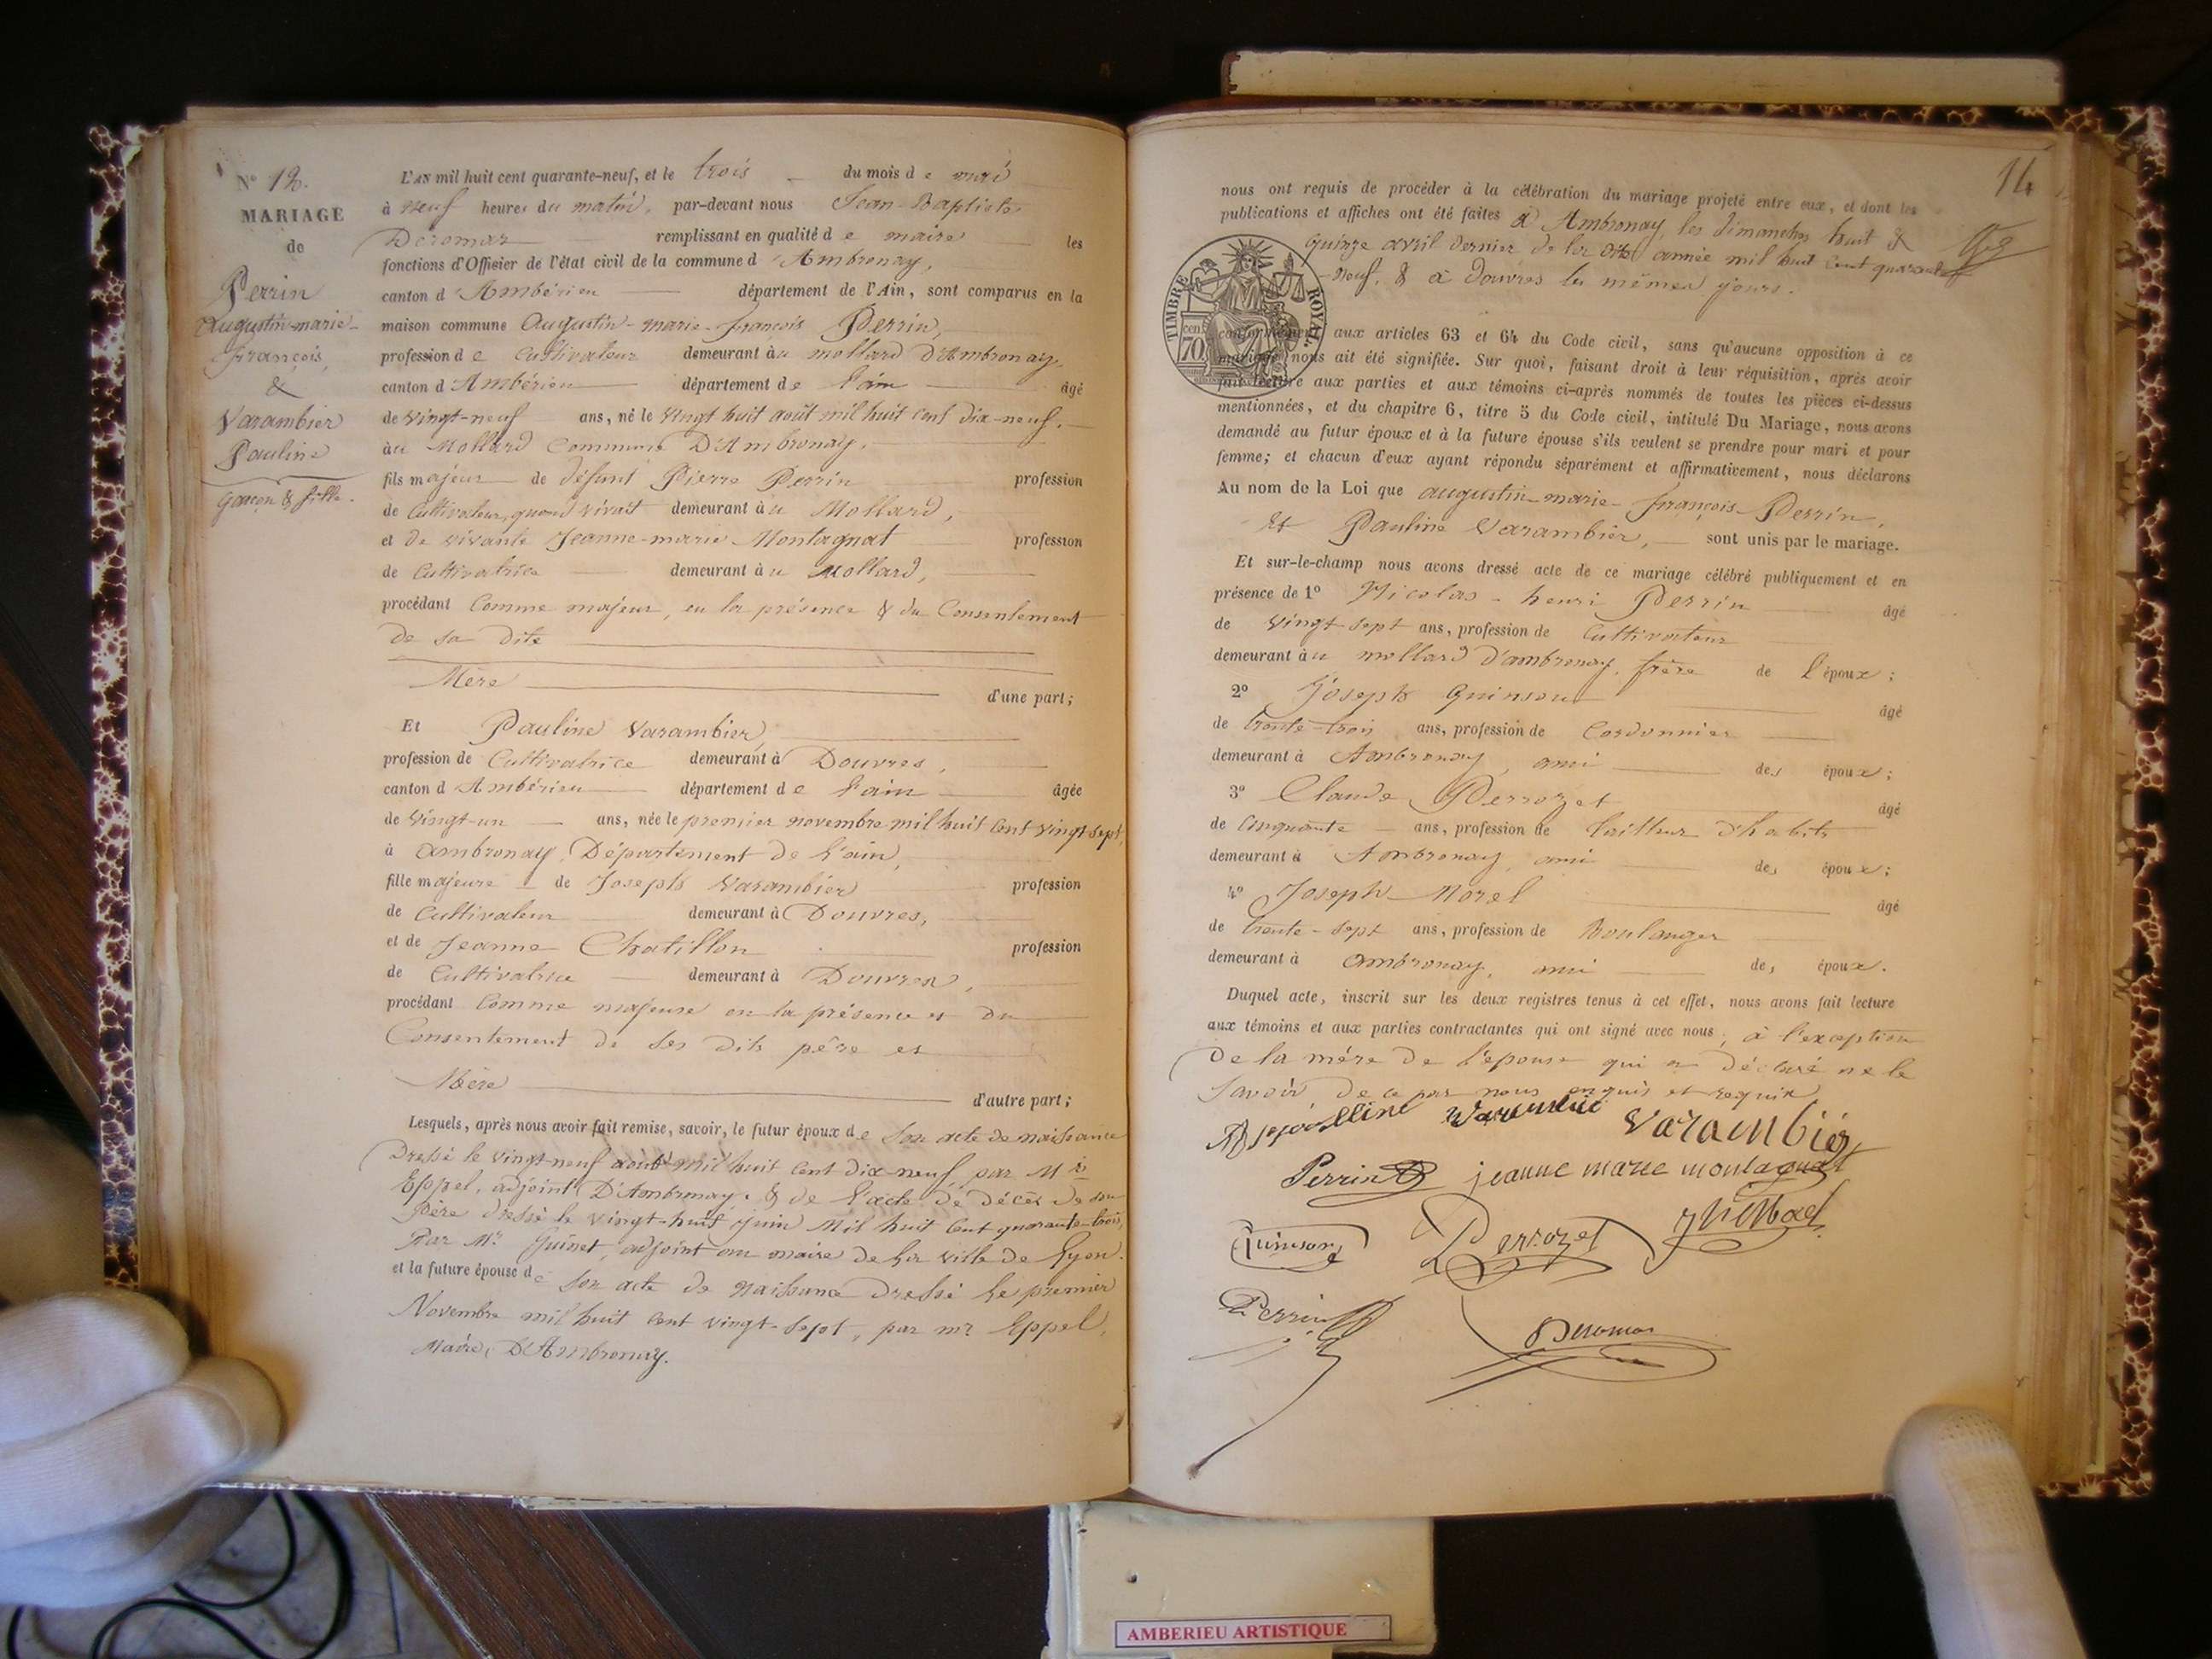 N° 12.
MARIAGE
de
Perrin
Augustin-marie-
françois,
&
Varambier
Pauline
garçon & fille.
L'AN mil huit cent quarante-neuf, et le trois du mois de mai
à neuf heures du matin, par-devant nous Jean-Baptiste
Deromas remplissant en qualité de maire les
fonctions d'Officier de l'état civil de la commune d'Ambronay,
canton d'Ambérieu département de l'Ain, sont comparus en la
maison commune Augustin-marie-françois Perrin,
profession de Cultivateur demeurant au mollard D'Ambronay,
canton d'Ambérieu département de l'ain âgé
de vingt-neuf ans, né le vingt huit août mil huit cent dix-neuf,
au Mollard Commune D'Ambronay.
fils majeur de défunt Pierre Perrin profession
de Cultivateur, quand vivait demeurant au Mollard,
et de vivante Jeanne-marie Montagnat profession
de Cultivatrice demeurant au Mollard,
procédant Comme majeur, en la présence & du Consentement
de sa dite
Mère d'une part;
Et Pauline Varambier,
profession de Cultivatrice demeurant à Douvres,
canton d'Ambérieu département de l'ain âgée
de vingt-un ans, née le premier novembre mil huit cent vingt-sept,
à ambronay, Département de l'ain,
fille majeure de Joseph Varambier profession
de Cultivateur demeurant à Douvres,
et de Jeanne Chatillon profession
de Cultivatrice demeurant à Douvres,
procédant Comme majeure en la présence et du
Consentement de ses dits père et
Mère d'autre part;
Lesquels, après nous avoir fait remise, savoir, le futur époux de son acte de naissance
Dressé le vingt-neuf août mil huit cent dix-neuf, par Mr
Eppel, adjoint D'Ambronay, & de l'acte de décès de son
père dressé le vingt-huit juin Mil huit cent quarante-trois,
Par Mr Guinet, adjoint au maire de la ville de Lyon.
et la future épouse de son acte de naissance dressé le premier
Novembre mil huit cent vingt-sept, par mr Eppel,
Maire D'Ambronay.
14
nous ont requis de procéder à la célébration du mariage projeté entre eux, et dont les
publications et affiches ont été faites à Ambronay, les dimanches huit &
quinze avril dernier de la dite année mil huit cent quarante
-neuf, & à Douvres les mêmes jours.
TIMBRE ROYAL
70 cen
conformément aux articles 63 et 64 du Code civil, sans qu'aucune opposition à ce
mariage nous ait été signifiée. Sur quoi, faisant droit à leur réquisition, après avoir
fait lecture aux parties et aux témoins ci-après nommés de toutes les pièces ci-dessus
mentionnées, et du chapitre 6, titre 5 du Code civil, intitulé Du Mariage, nous avons
demandé au futur époux et à la future épouse s'ils veulent se prendre pour mari et pour
femme; et chacun d'eux ayant répondu séparément et affirmativement, nous déclarons
Au nom de la Loi que augustin-marie-françois-Perrin,
Et Pauline Varambier, sont unis par le mariage.
Et sur-le-champ nous avons dressé acte de ce mariage célébré publiquement et en
présence de 1° Nicolas-henri Perrin âgé
de vingt-sept ans, profession de Cultivateur
demeurant au mollard d'ambronay, frère de l'époux;
2° Joseph Quinson âgé
de trente-trois ans, profession de Cordonnier
demeurant à Ambronay, ami des époux;
3° Claude Perrozet âgé
de Cinquante ans, profession de tailleur d'habits
demeurant à Ambronay, ami des époux;
4° Joseph Morel âgé
de trente-sept ans, profession de Boulanger
demeurant à Ambronay, ami des époux.
Duquel acte, inscrit sur les deux registres tenus à cet effet, nous avons fait lecture
aux témoins et aux parties contractantes qui ont signé avec nous, à l'exception
De la mère de l'épouse qui a déclaré ne le
savoir de ce par nous enquis et requis
Varambier
Perrin jeanne marie montagnat
Quinson Perrozet
Perrin
Deromas
AMBERIEU ARTISTIQUE